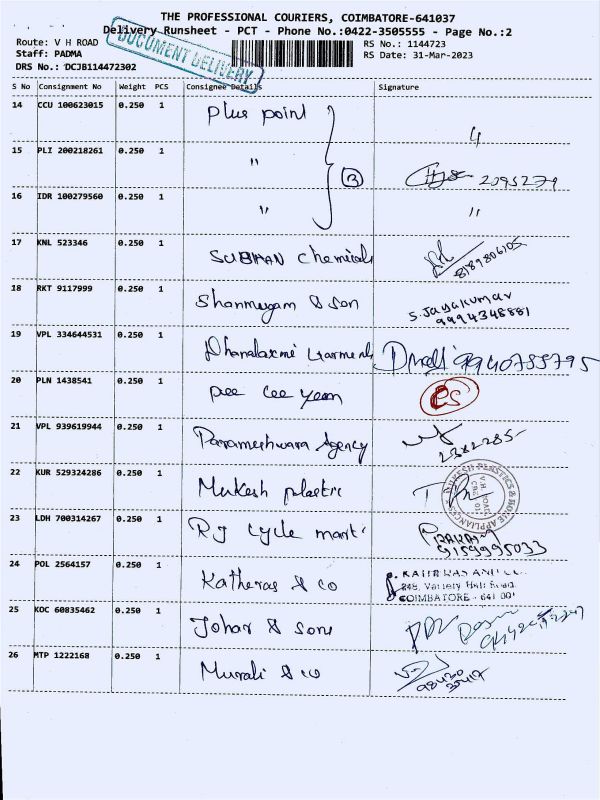 THE PROFESSIONAL COURIERS, COIMBATORE-641037
Delivery Runsheet - PCT - Phone No.:0422-3505555 - Page No.:2
Route: V H ROAD
Staff: PADMA
DRS No.: DCJB114472302
DOCUMENT DELIVERY
RS No.: 1144723
RS Date: 31-Mar-2023
S No Consignment No Weight PCS Consignee Details Signature
14 CCU 100623015 0.250 1 Plus point 4
15 PLI 200218261 0.250 1 " 2095279
3
16 IDR 100279560 0.250 1 " "
17 KNL 523346 0.250 1 SUBHAN Chemicals 8189806105
18 RKT 9117999 0.250 1 Shanmugam & son S. Jayakumar
9994348881
19 VPL 334644531 0.250 1 Dhanalaxmi Garments 9940755795
20 PLN 1438541 0.250 1 Pee Cee Yearn
21 VPL 939619944 0.250 1 Parameshwara Agency
22 KUR 529324286 0.250 1 Mukesh plastic
MUKESH PLASTICS & HOME APPLIANCES
V.H. ROAD
CBE
23 LDH 700314267 0.250 1 RJ Cycle mart PRAKASH
9159995033
24 POL 2564157 0.250 1 Katheras & co
249, Variety Hall Road,
COIMBATORE - 641 001
25 KOC 60835462 0.250 1 Johar & sons
26 MTP 1222168 0.250 1 Murali & co 98420